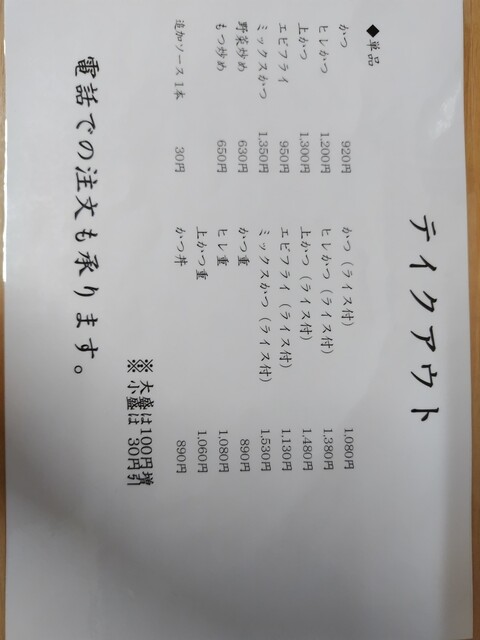 テイクアウト
◆単品
かつ 920円
ヒレかつ 1,200円
上かつ 1,300円
エビフライ 950円
ミックスかつ 1,350円
野菜炒め 630円
もつ炒め 650円
追加ソース1本 30円
かつ（ライス付） 1,080円
ヒレかつ（ライス付） 1,380円
上かつ（ライス付） 1,480円
エビフライ（ライス付） 1,130円
ミックスかつ（ライス付） 1,530円
かつ重 890円
ヒレ重 1,080円
上かつ重 1,060円
かつ丼 890円
※ 大盛は100円増
※ 小盛は 30円引
電話での注文も承ります。